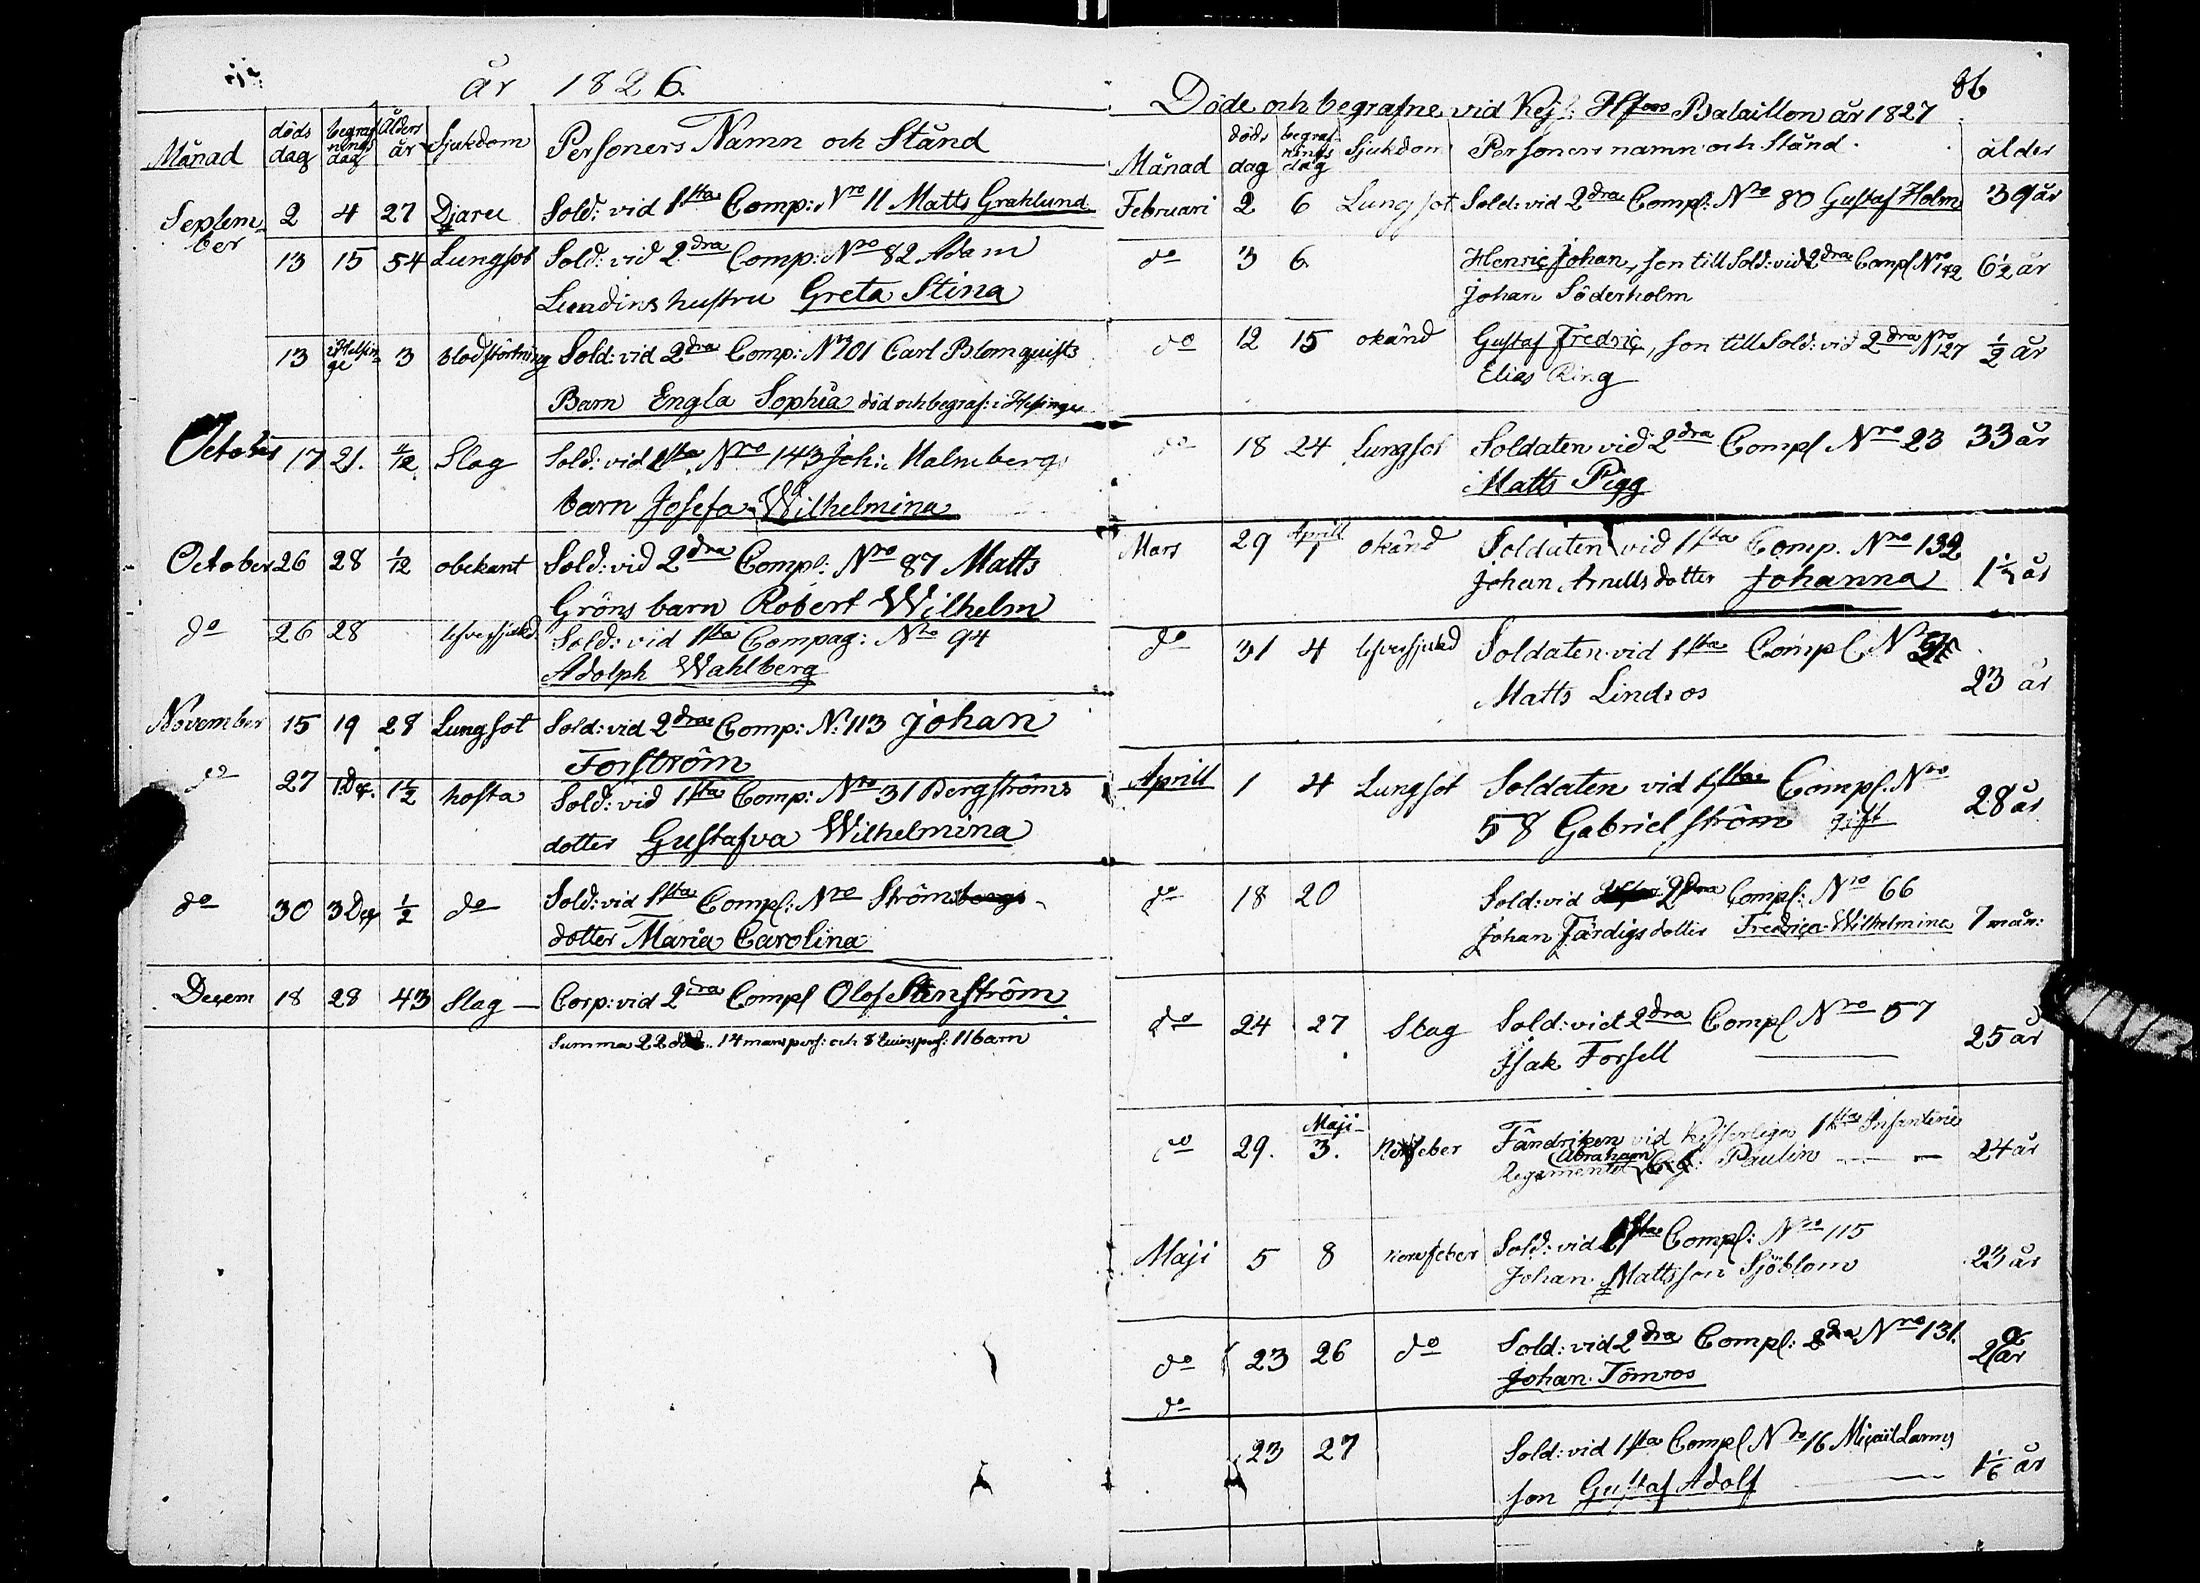 år 1826.
Månad döds dag begrafnings dag Ålders år Sjukdom Personers Namn och Stånd
September 2 4 27 Diaree Sold: vid 1sta Comp: Nro 11 Matts Grahlund
13 15 54 Lungsot Sold: vid 2dra Comp: Nro 82 Adam
Lundins hustru Greta Stina
13 i Helsinge 3 blodstörtning Sold: vid 2dra Comp: Nro 101 Carl Blomquists
Barn Engla Sophia död och begraf: i Helsinge
October 17 21. Slag Sold: vid 1sta Nro 143 Joh: Malmbergs
barn Josefa Wilhelmina
October 26 28 1/12 obekant Sold: vid 2dra Compl: Nro 87 Matts
Gröns barn Robert Wilhelm
do 26 28 lefversjukd. Sold: vid 1sta Compag: Nro 94
Adolph Wahlberg
November 15 19 28 Lungsot Sold: vid 2dra Comp: N: 113 Johan
Forström
do 27 1 Dec. 1 1/2 hosta Sold: vid 1sta Comp: Nro 31 Bergströms
dotter Gustafva Wilhelmina
do 30 3 Dec 1/2 do Sold: vid 1sta Compl: Nro Ströms
dotter Maria Carolina
Decem 18 28 43 Slag — Corp: vid 2dra Compl Olof Stenström
Summa 22 död. 14 manspers: och 8 quinspers: 11 barn
86
Döde och begrafne vid Kejs: Hfors Bataillon år 1827
Månad döds dag begrafnings dag Sjukdom Personers namn och Stånd. ålder
Februari 2 6 Lungsot Sold: vid 2dra Compl: Nro 80 Gustaf Holm 39 år
do 3 6 Henric Johan, son till Sold: vid 2dra Compl Nro 142 6 1/2 år
Johan Söderholm
do 12 15 okänd Gustaf Fredric, son till Sold: vid 2dra Nro 127 1/2 år
Elias Ring
do 18 24 Lungsot Soldaten vid 2dra Compl Nro 23 33 år
Matts Pigg
Mars 29 Aprill 1 okänd Soldaten vid 1sta Comp. Nro 132
Johan Arnells dotter Johanna 1 1/2 år
do 31 4 lefversjukd Soldaten vid 1sta Compl N
Matts Lindros 23 år
Aprill 1 4 Lungsot Soldaten vid 1sta Compl: Nro
58 Gabriel Ström gift 28 år
do 18 20 Sold: vid 2dra Compl: Nro 66
Johan Färdigs dotter Fredrica Wilhelmina 7 mån:
do 24 27 Slag Sold: vid 2dra Compl Nro 57
Isak Forsell 25 år
do 29. Maji 3. Nerffeber Fändriken vid Kejserliga 1sta Infanterie
Regementet Abraham Paulin — — 24 år
Maji 5 8 nervfeber Sold: vid 1sta Compl: Nro 115
Johan Mattsson Sjöblom 23 år
do 23 26 do Sold: vid 2dra Compl: 2dra Nro 131.
Johan Törnros år
do
23 27 Sold: vid 1sta Compl Nro 16 Micail Larms
son Gustaf Adolf 1 1/6 år